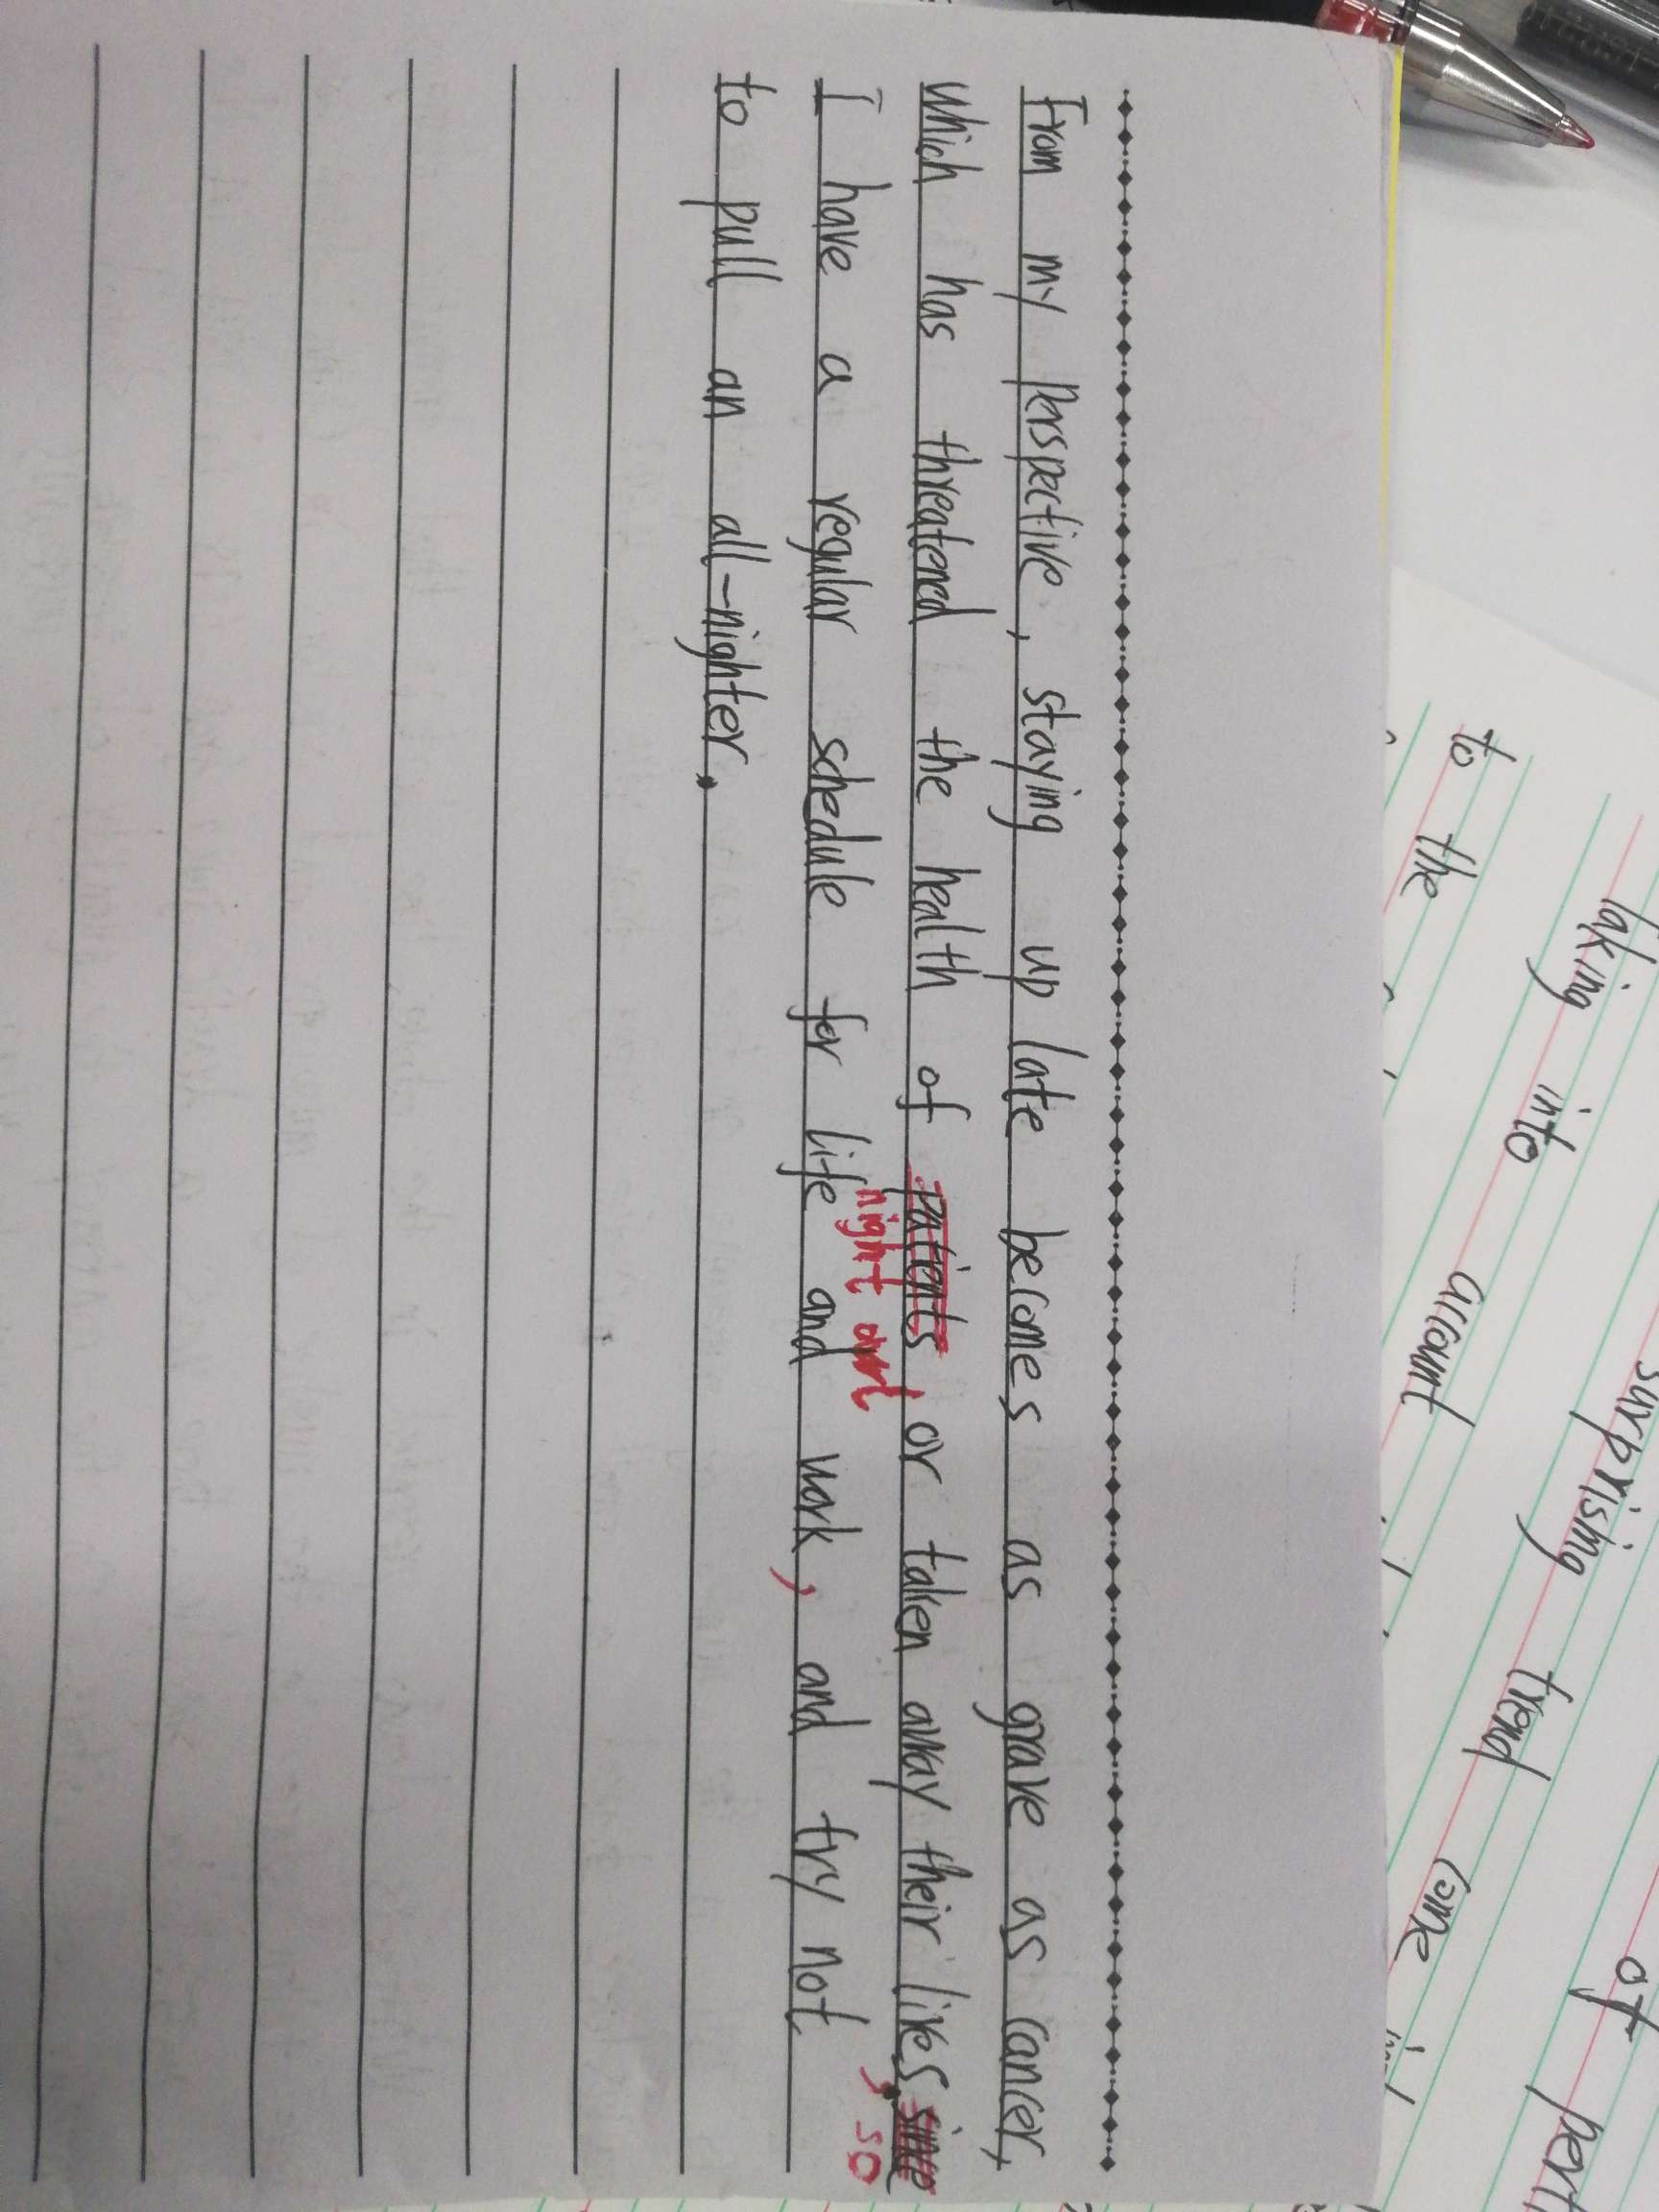 From my perspective, staying up late becomes as grave as cancer,
which has threatened the health of patients, or taken away their lives, since
night owl
so
I have a regular schedule for life and work, and try not
to pull an all-nighter.
of
surprising trend
taking into account
come
to the